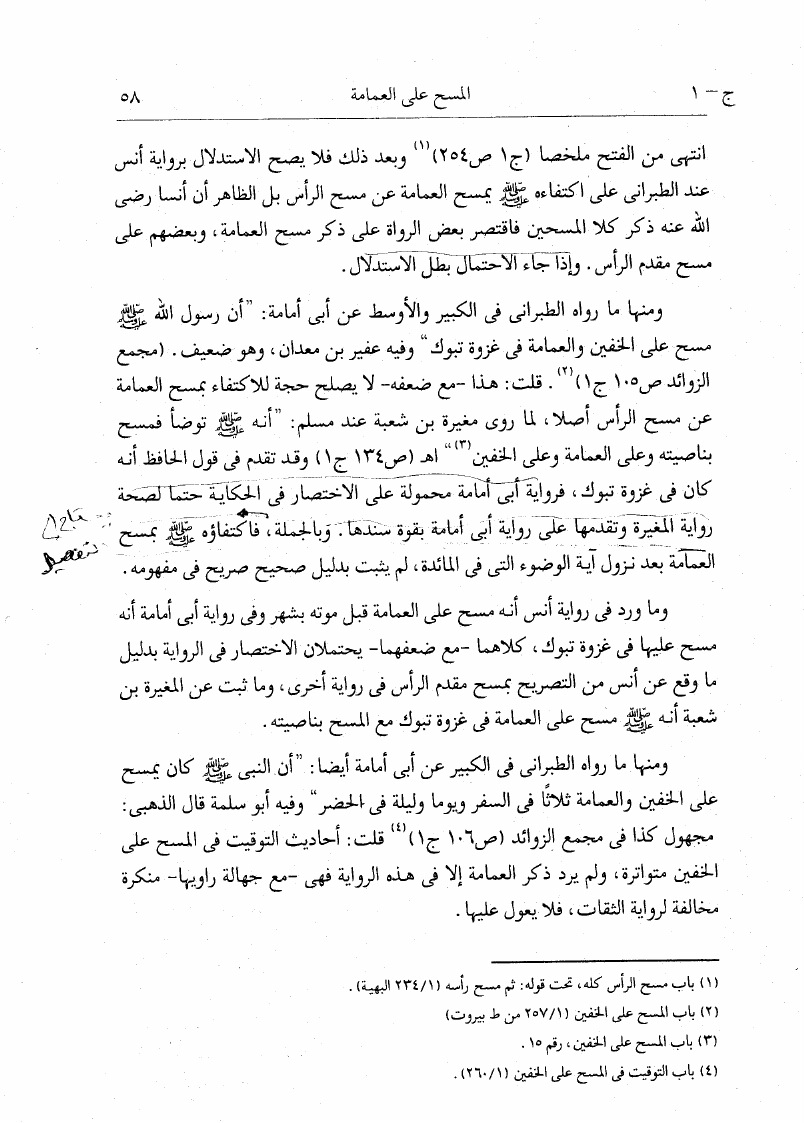 ج - ١ المسح على العمامة ٥٨
انتهى من الفتح ملخصا (ج١ ص٢٥٤)(١) وبعد ذلك فلا يصح الاستدلال برواية أنس
عند الطبرانى على اكتفاءه ﷺ بمسح العمامة عن مسح الرأس بل الظاهر أن أنسا رضى
الله عنه ذكر كلا المسحين فاقتصر بعض الرواة على ذكر مسح العمامة، وبعضهم على
مسح مقدم الرأس. وإذا جاء الاحتمال بطل الاستدلال.
ومنها ما رواه الطبرانى فى الكبير والأوسط عن أبى أمامة: "أن رسول الله ﷺ
مسح على الخفين والعمامة فى غزوة تبوك" وفيه عفير بن معدان، وهو ضعيف. (مجمع
الزوائد ص١٠٥ ج١)(٢). قلت: هذا -مع ضعفه- لا يصلح حجة للاكتفاء بمسح العمامة
عن مسح الرأس أصلا، لما روى مغيرة بن شعبة عند مسلم: "أنه ﷺ توضأ فمسح
بناصيته وعلى العمامة وعلى الخفين(٣)" اهـ (ص١٣٤ ج١) وقد تقدم فى قول الحافظ أنه
كان فى غزوة تبوك، فرواية أبى أمامة محمولة على الاختصار فى الحكاية حتما لصحة
رواية المغيرة وتقدمها على رواية أبى أمامة بقوة سندها. وبالجملة، فاكتفاؤه ﷺ بمسح
العمامة بعد نزول آية الوضوء التى فى المائدة، لم يثبت بدليل صحيح صريح فى مفهومه.
وما ورد فى رواية أنس أنه مسح على العمامة قبل موته بشهر وفى رواية أبى أمامة أنه
مسح عليها فى غزوة تبوك، كلاهما -مع ضعفهما- يحتملان الاختصار فى الرواية بدليل
ما وقع عن أنس من التصريح بمسح مقدم الرأس فى رواية أخرى، وما ثبت عن المغيرة بن
شعبة أنه ﷺ مسح على العمامة فى غزوة تبوك مع المسح بناصيته.
ومنها ما رواه الطبرانى فى الكبير عن أبى أمامة أيضا: "أن النبى ﷺ كان يمسح
على الخفين والعمامة ثلاثًا فى السفر ويوما وليلة فى الحضر" وفيه أبو سلمة قال الذهبى:
مجهول كذا فى مجمع الزوائد (ص١٠٦ ج١)(٤) قلت: أحاديث التوقيت فى المسح على
الخفين متواترة، ولم يرد ذكر العمامة إلا فى هذه الرواية فهى -مع جهالة راويها- منكرة
مخالفة لرواية الثقات، فلا يعول عليها.
(١) باب مسح الرأس كله، تحت قوله: ثم مسح رأسه (٢٣٤/١ البهية).
(٢) باب المسح على الخفين (٢٥٧/١ من ط بيروت)
(٣) باب المسح على الخفين، رقم ١٥.
(٤) باب التوقيت فى المسح على الخفين (٢٦٠/١).